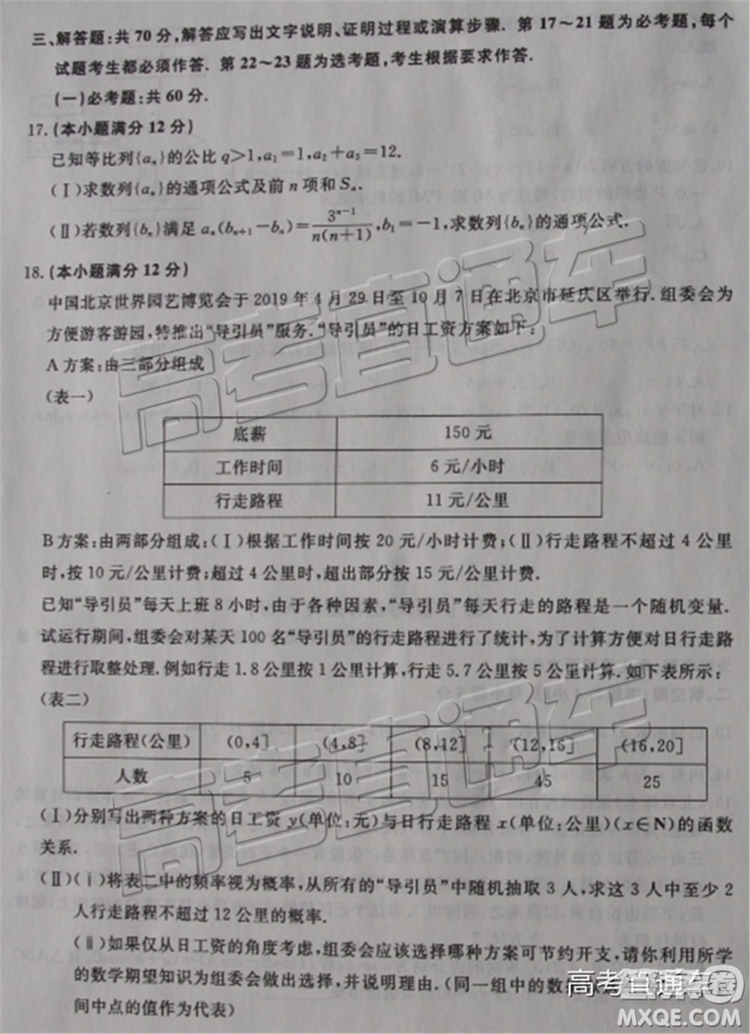 三、解答题:共 70 分,解答应写出文字说明、证明过程或演算步骤. 第 17～21 题为必考题,每个
试题考生都必须作答. 第 22～23 题为选考题,考生根据要求作答.
(一)必考题:共 60 分.
17. (本小题满分 12 分)
已知等比列{aₙ}的公比 q>1,a₁=1,a₂+a₃=12.
(Ⅰ)求数列{aₙ}的通项公式及前 n 项和 Sₙ.
(Ⅱ)若数列{bₙ}满足 aₙ(bₙ₊₁−bₙ)=3ⁿ⁻¹/n(n+1),b₁=−1,求数列{bₙ}的通项公式.
18. (本小题满分 12 分)
中国北京世界园艺博览会于 2019 年 4 月 29 日至 10 月 7 日在北京市延庆区举行. 组委会为
方便游客游园,特推出“导引员”服务.“导引员”的日工资方案如下:
A 方案:由三部分组成
(表一)
底薪 150 元
工作时间 6 元/小时
行走路程 11 元/公里
B 方案:由两部分组成:(Ⅰ)根据工作时间按 20 元/小时计费;(Ⅱ)行走路程不超过 4 公里
时,按 10 元/公里计费;超过 4 公里时,超出部分按 15 元/公里计费.
已知“导引员”每天上班 8 小时,由于各种因素,“导引员”每天行走的路程是一个随机变量.
试运行期间,组委会对某天 100 名“导引员”的行走路程进行了统计,为了计算方便对日行走路
程进行取整处理. 例如行走 1.8 公里按 1 公里计算,行走 5.7 公里按 5 公里计算. 如下表所示:
(表二)
行走路程(公里) (0,4] (4,8] (8,12] (12,16] (16,20]
人数 5 10 15 45 25
(Ⅰ)分别写出两种方案的日工资 y(单位:元)与日行走路程 x(单位:公里)(x∈N)的函数
关系.
(Ⅱ)(ⅰ)将表二中的频率视为概率,从所有的“导引员”中随机抽取 3 人,求这 3 人中至少 2
人行走路程不超过 12 公里的概率.
(ⅱ)如果仅从日工资的角度考虑,组委会应该选择哪种方案可节约开支,请你利用所学
的数学期望知识为组委会做出选择,并说明理由.(同一组中的数据
间中点的值作为代表)
高考直通车
高考直通车
高考直通车
MXQE.COM